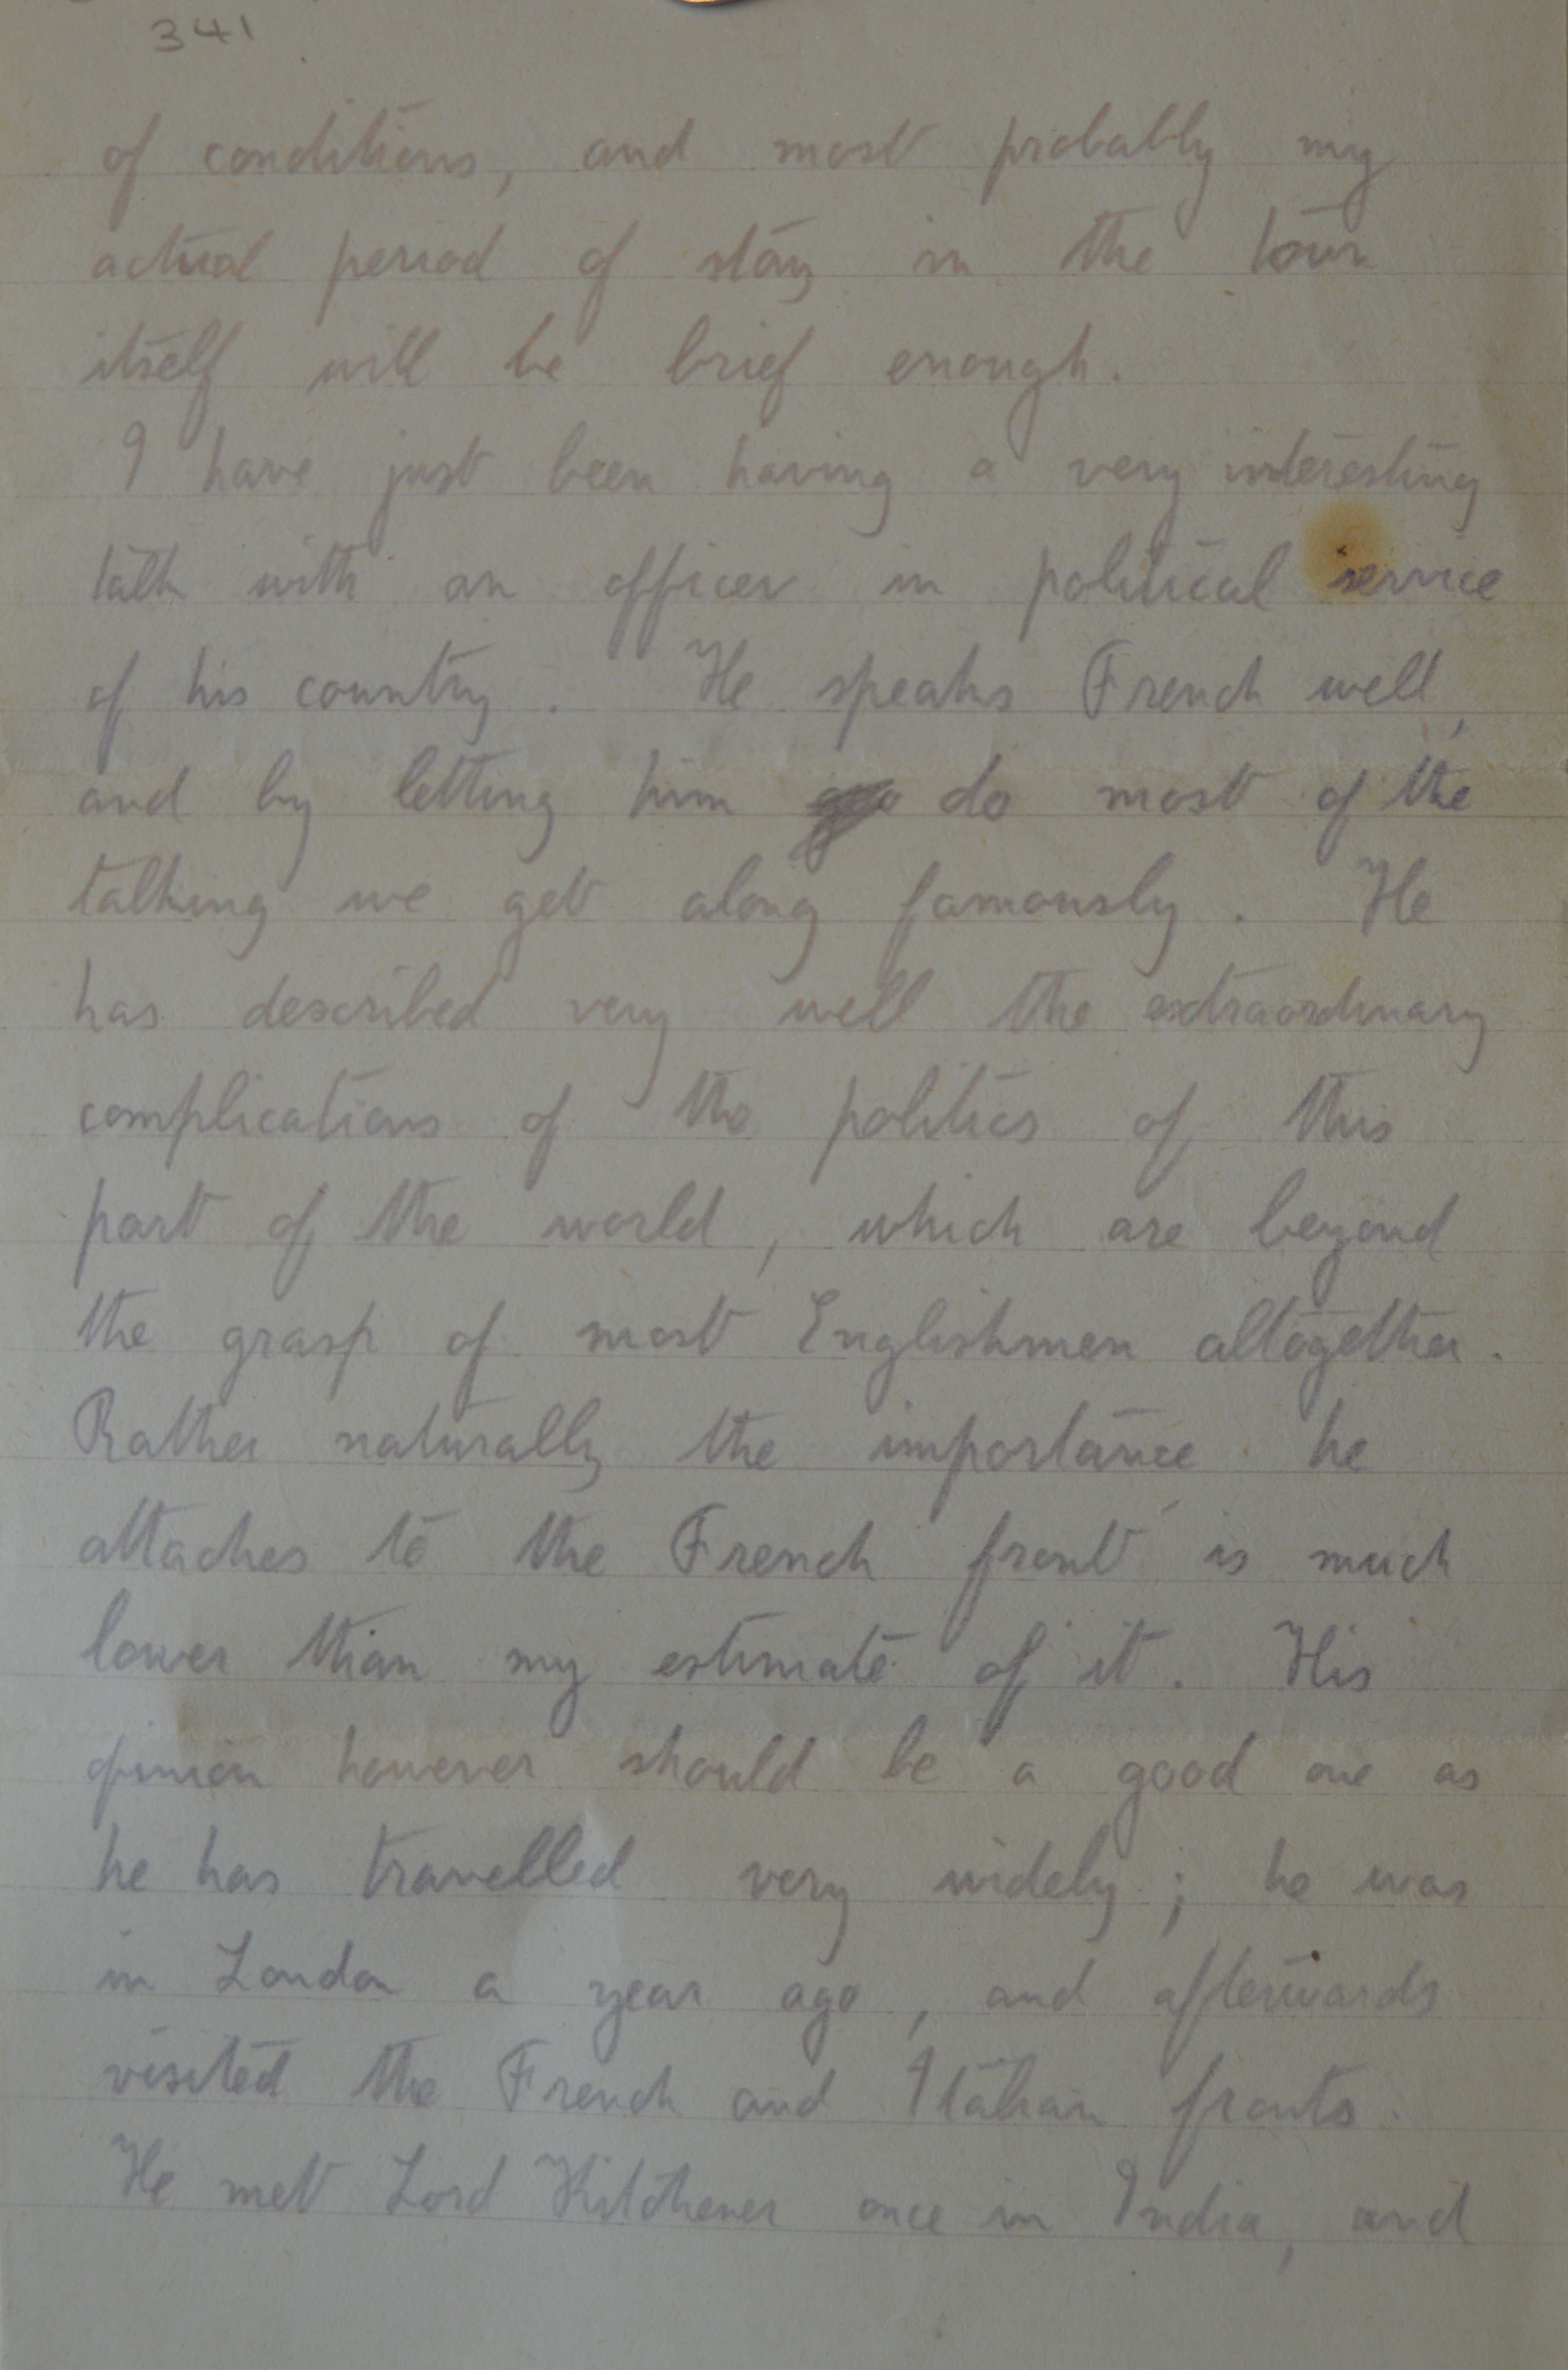 341
of conditions, and most probably my
actual period of stay in the town
itself will be brief enough.
I have just been having a very interesting
talk with an officer in political service
of his country. He speaks French well,
and by letting him do most of the
talking we get along famously. He
has described very well the extraordinary
complications of the politics of this
part of the world, which are beyond
the grasp of most Englishmen altogether.
Rather naturally the importance he
attaches to the French front is much
lower than my estimate of it. His
opinion however should be a good one as
he has travelled very widely; he was
in London a year ago, and afterwards
visited the French and Italian fronts.
He met Lord Kitchener once in India, and